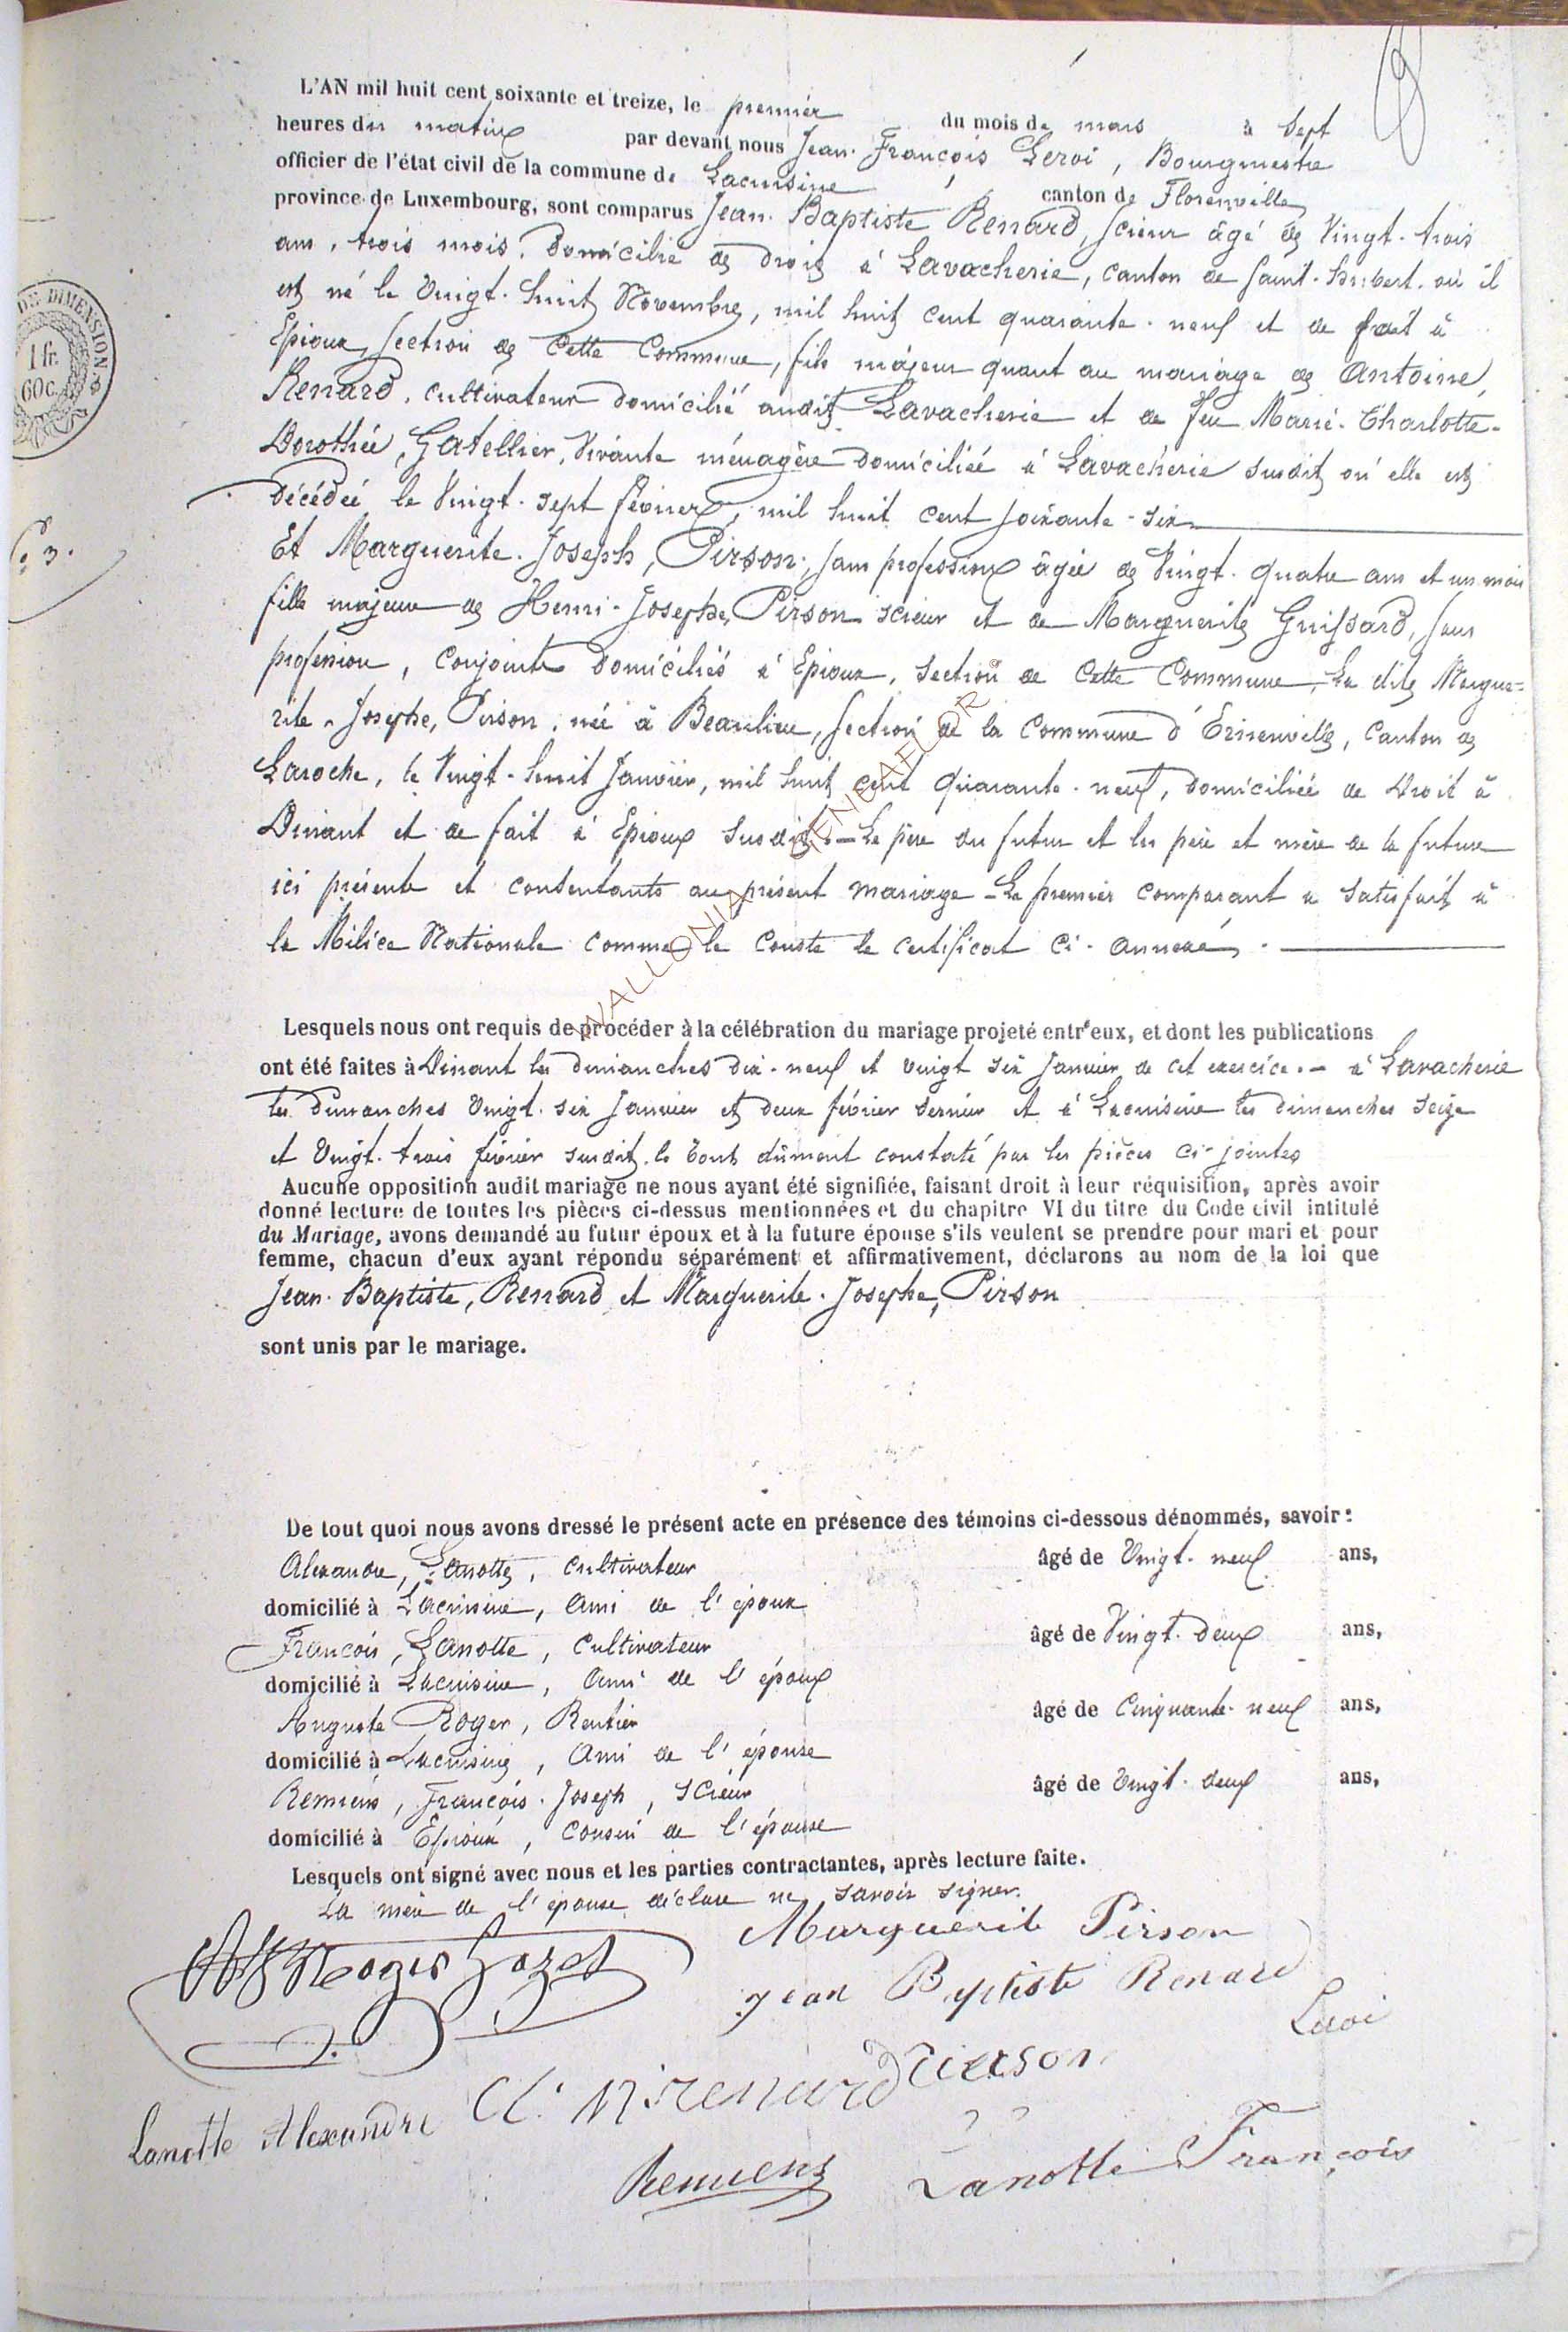 L'AN mil huit cent soixante et treize, le premier du mois de mars à sept
heures du matin par devant nous Jean-François Leroi, Bourgmestre
officier de l'état civil de la commune de Lacuisine, canton de Florenville
province de Luxembourg, sont comparus Jean-Baptiste Renard, scieur âgé de Vingt-trois
ans, trois mois, domicilié de droit à Lavacherie, canton de Saint-Hubert, où il
est né le Vingt-huit Novembre, mil huit cent quarante-neuf et de fait à
Epioux, section de cette commune, fils majeur quant au mariage de Antoine,
Renard, cultivateur domicilié audit Lavacherie et de feu Marie-Charlotte-
Dorothée, Gatellier, Vivante ménagère domiciliée à Lavacherie susdit où elle est
décédée le Vingt-sept février, mil huit cent soixante-six
Et Marguerite-Joseph, Pirson, sans profession âgée de Vingt-quatre ans et un mois
fille majeure de Henri-Josephe, Pirson scieur et de Marguerite Guissard, sans
profession, conjoints domiciliés à Epioux, section de cette Commune, La dite Margue=
rite-Josephe, Pirson, née à Beaulieu, section de la Commune d'Erneuville, Canton de
Laroche, le Vingt-huit Janvier, mil huit cent quarante-neuf, domiciliée de Droit à
Dinant et de fait à Epioux susdit. - Le père du futur et les père et mère de la future
ici présents et consentants au présent mariage - Le premier comparant a satisfait à
la Milice Nationale comme le conste le certificat ci-annexé.
Lesquels nous ont requis de procéder à la célébration du mariage projeté entr'eux, et dont les publications
ont été faites à Dinant les dimanches dix-neuf et vingt six Janvier de cet exercice. - à Lavacherie
les Dimanches Vingt-six Janvier et deux février dernier et à Lacuisine les dimanches seize
et Vingt-trois février susdit. le tout dûment constaté par les pièces ci-jointes
Aucune opposition audit mariage ne nous ayant été signifiée, faisant droit à leur réquisition, après avoir
donné lecture de toutes les pièces ci-dessus mentionnées et du chapitre VI du titre du Code civil intitulé
du Mariage, avons demandé au futur époux et à la future épouse s'ils veulent se prendre pour mari et pour
femme, chacun d'eux ayant répondu séparément et affirmativement, déclarons au nom de la loi que
Jean-Baptiste, Renard et Marguerite-Josephe, Pirson
sont unis par le mariage.
De tout quoi nous avons dressé le présent acte en présence des témoins ci-dessous dénommés, savoir :
Alexandre, Lanotte, cultivateur âgé de Vingt-neuf ans,
domicilié à Lacuisine, Ami de l'époux
François, Lanotte, cultivateur âgé de Vingt-deux ans,
domicilié à Lacuisine, Ami de l'époux
Auguste Roger, Rentier âgé de Cinquante-neuf ans,
domicilié à Lacuisine, Ami de l'épouse
Remiens, François-Joseph, scieur âgé de Vingt-deux ans,
domicilié à Epioux, Cousin de l'épouse
Lesquels ont signé avec nous et les parties contractantes, après lecture faite.
La mère de l'épouse déclare ne savoir signer.
Marguerite Pirson
Roger Jean Baptiste Renard
Leroi
Lanotte Alexandre Renard Pierson
Remiens Lanotte François
DE DIMENSION
1 fr.
60 c.
N° 3.
WALLONIA GENEAFLOR